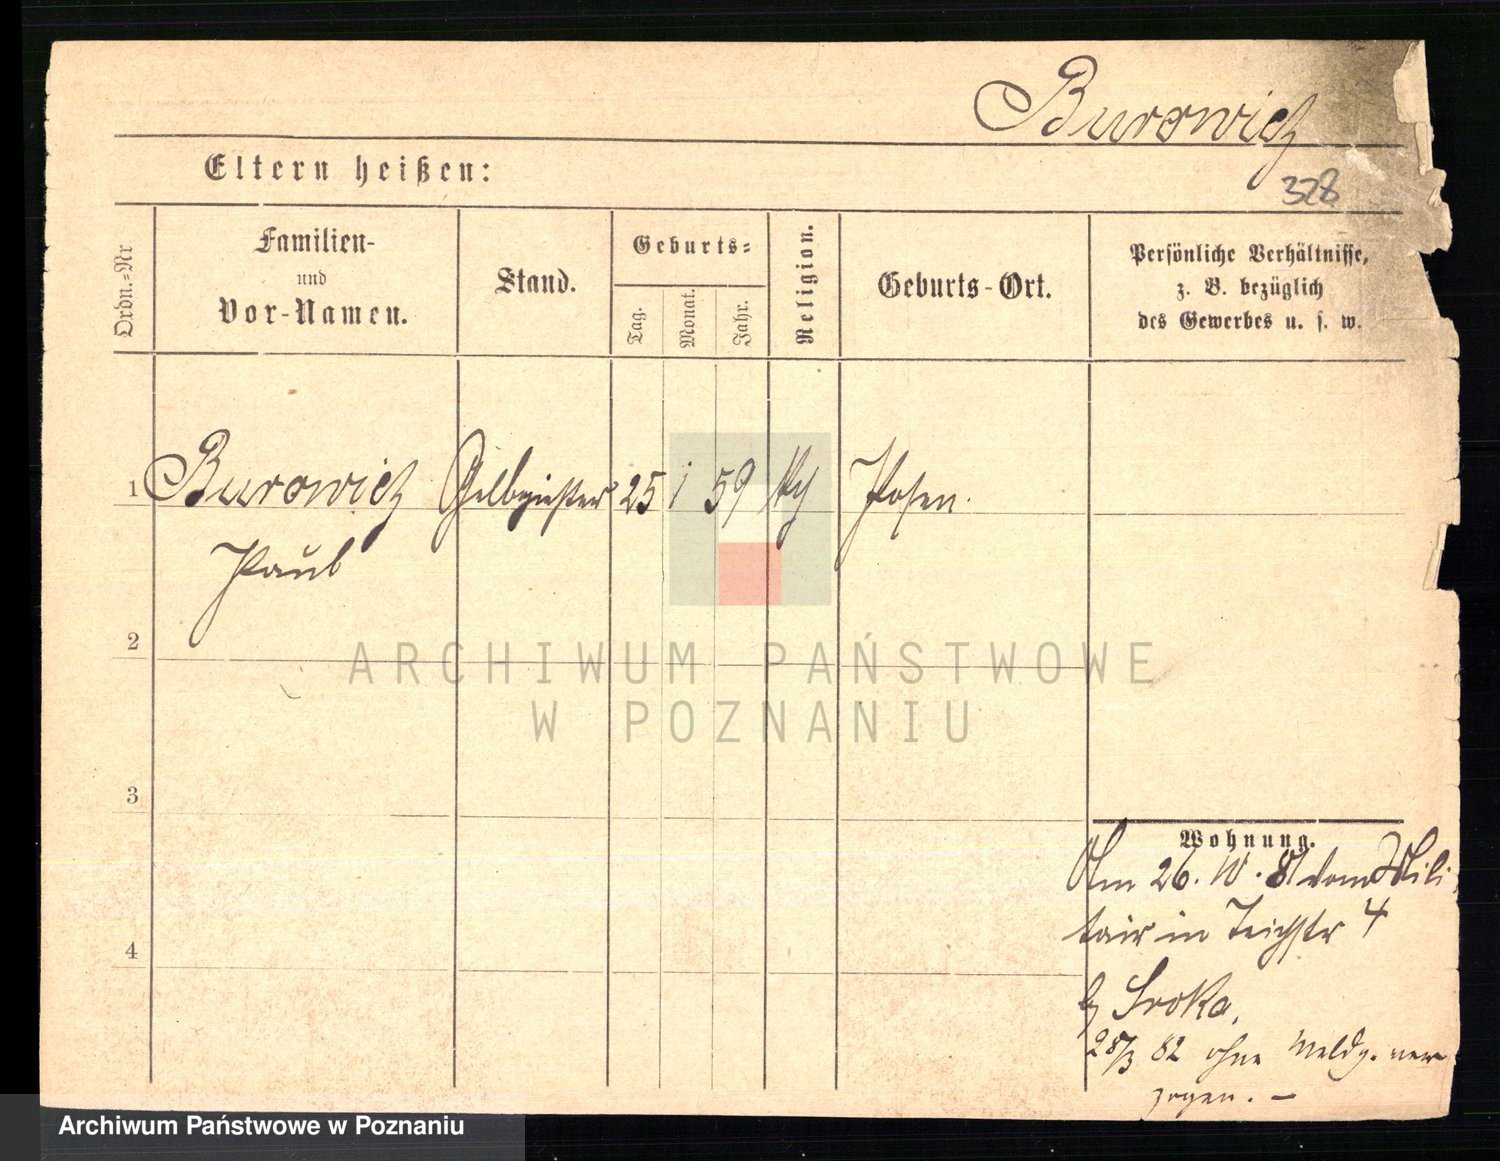 Burowicz
328
Eltern heißen:
Ordn.=Nr
Familien-
und
Vor-Namen.
Stand.
Geburts=
Tag.
Monat.
Jahr.
Religion.
Geburts-Ort.
Persönliche Verhältnisse,
z. B. bezüglich
des Gewerbes u. s. w.
1 Burowicz Gelbgießer 25 1 59 Posen.
Paul
2
3
4
Wohnung.
Am 26. 10. 81 vom Mili
tair in Teichstr 4
b/ Sroka,
28/3 82 ohne Meldg. ver
zogen. —
ARCHIWUM PAŃSTWOWE
W POZNANIU
Archiwum Państwowe w Poznaniu